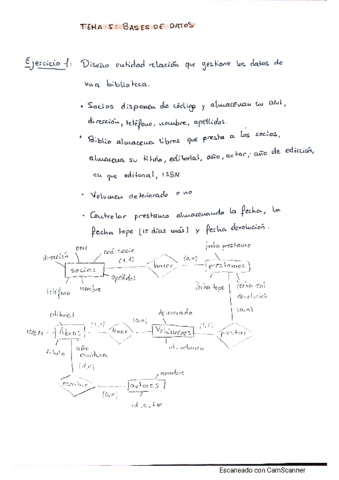 TEMA 5: BASES DE DATOS
Ejercicio 1: Diseño entidad relación que gestione los datos de
una biblioteca.
• Socios disponen de código y almacenan su DNI,
dirección, teléfono, nombre, apellidos.
• Biblio almacena libros que presta a los socios,
almacena su título, editorial, año, autor, año de edición,
en que editorial, ISBN
• Volumen deteriorado o no
• Controlar prestamo almacenando la fecha, la
fecha tope (15 días más) y fecha devolución.
fecha prestamo
DNI
cod. socio
dirección
(1,1)
(0,n)
socios
hacer
prestamos
apellidos
teléfono
nombre
fecha tope
fecha real
devolución
(0,n)
editorial
deteriorado
(1,1)
(0,n)
(1,1)
ISBN
libros
tener
Volúmenes
prestar
título
año
escritura
id_volumen
(1,n)
nombre
escribir
autores
(0,n)
id_autor
Escaneado con CamScanner